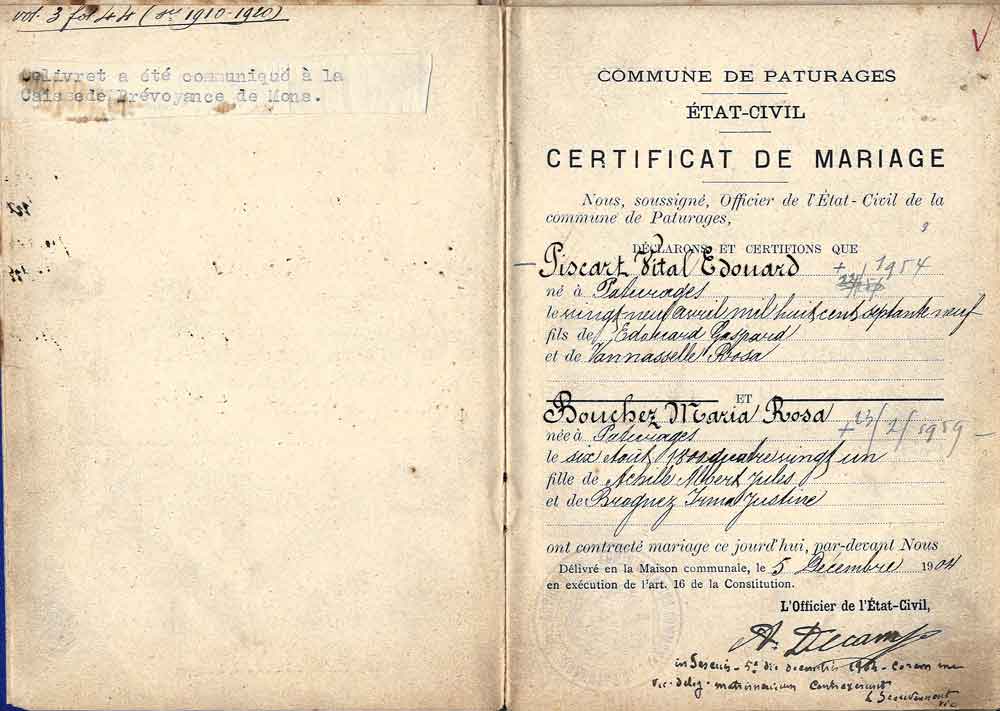 vol. 3 fol 44 (1910-1920)
Celivret a été communiqué à la
Caissede Prévoyance de Mons.
COMMUNE DE PATURAGES
ÉTAT-CIVIL
CERTIFICAT DE MARIAGE
Nous, soussigné, Officier de l'État-Civil de la
commune de Paturages,
DÉCLARONS ET CERTIFIONS QUE
Piscart Vital Edouard + 1954
né à Paturages
le vingt neuf avril mil huit cent septante neuf
fils de Edouard Gaspard
et de Vannasselle Rosa
ET
Bouchez Maria Rosa
née à Paturages + 23/2/1959
le six août 1800 quatre vingt un
fille de Achille Albert Jules
et de Brognez Irma Justine
ont contracté mariage ce jourd'hui, par-devant Nous
Délivré en la Maison communale, le 5 Décembre 1904
en exécution de l'art. 16 de la Constitution.
L'Officier de l'État-Civil,
A. Decamps
5a die decembris 1904 - coram me
vic. deleg. matrimonium contraxerunt